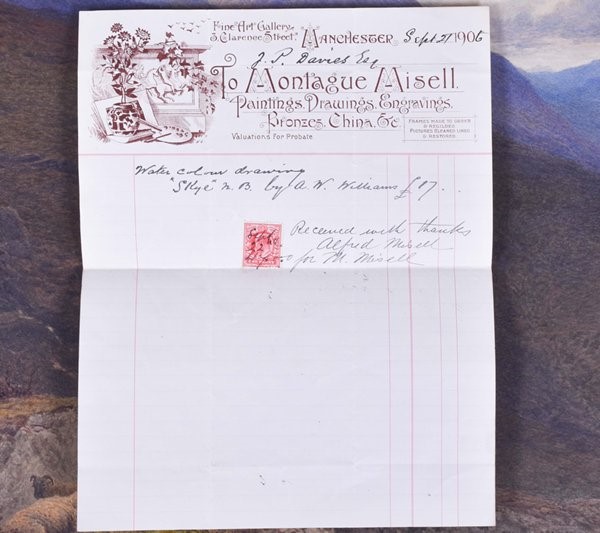 Fine Art Gallery
3, Clarence Street
Manchester, Sept 21 1906
J. P. Davies Esq
To Montague Misell.
Paintings, Drawings, Engravings,
Bronzes, China, &c
Valuations For Probate
FRAMES MADE TO ORDER
& REGILDED
PICTURES CLEANED LINED
& RESTORED
Water colour drawing
"Skye" N. B. by A. W. Williams £17 . .
Received with thanks
Alfred Misell
for M. Misell